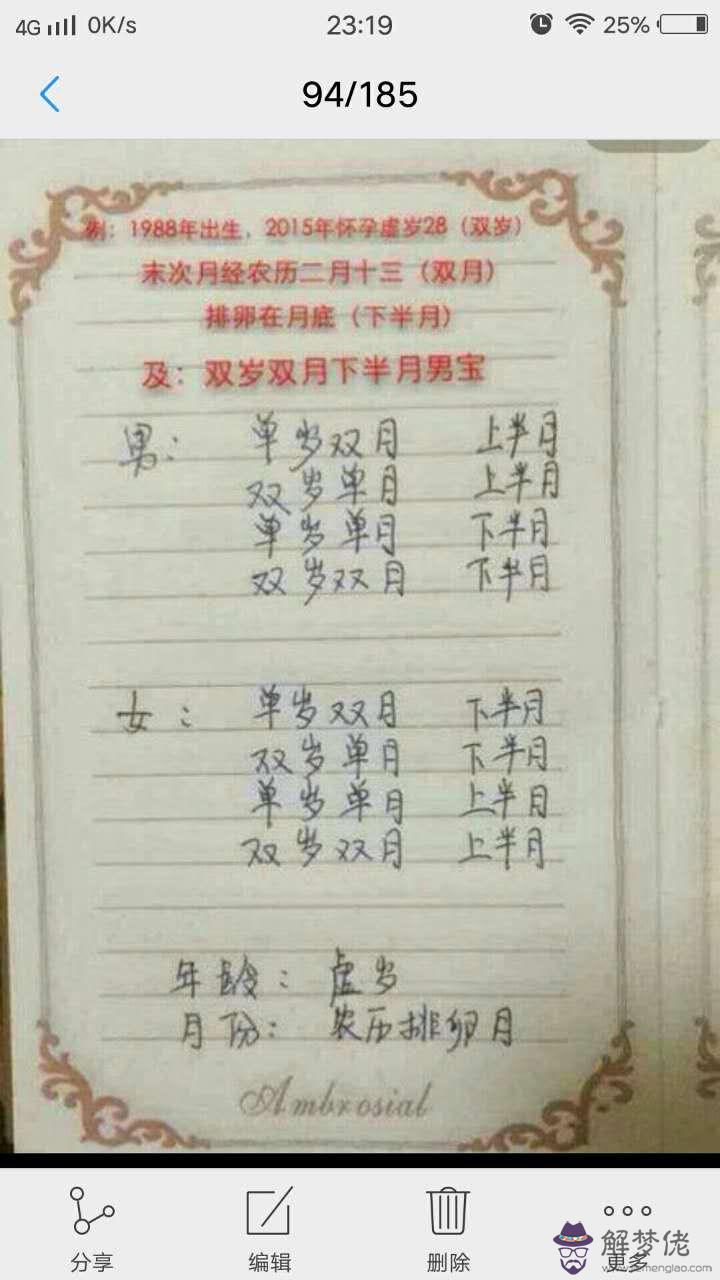 4G 0K/s 23:19 25%
94/185
例：1988年出生，2015年怀孕虚岁28（双岁）
末次月经农历二月十三（双月）
排卵在月底（下半月）
及：双岁双月下半月男宝
男： 单岁双月 上半月
双岁单月 上半月
单岁单月 下半月
双岁双月 下半月
女： 单岁双月 下半月
双岁单月 下半月
单岁单月 上半月
双岁双月 上半月
年龄： 虚岁
月份： 农历排卵月
Ambrosial
分享 编辑 删除 更多
解梦佬